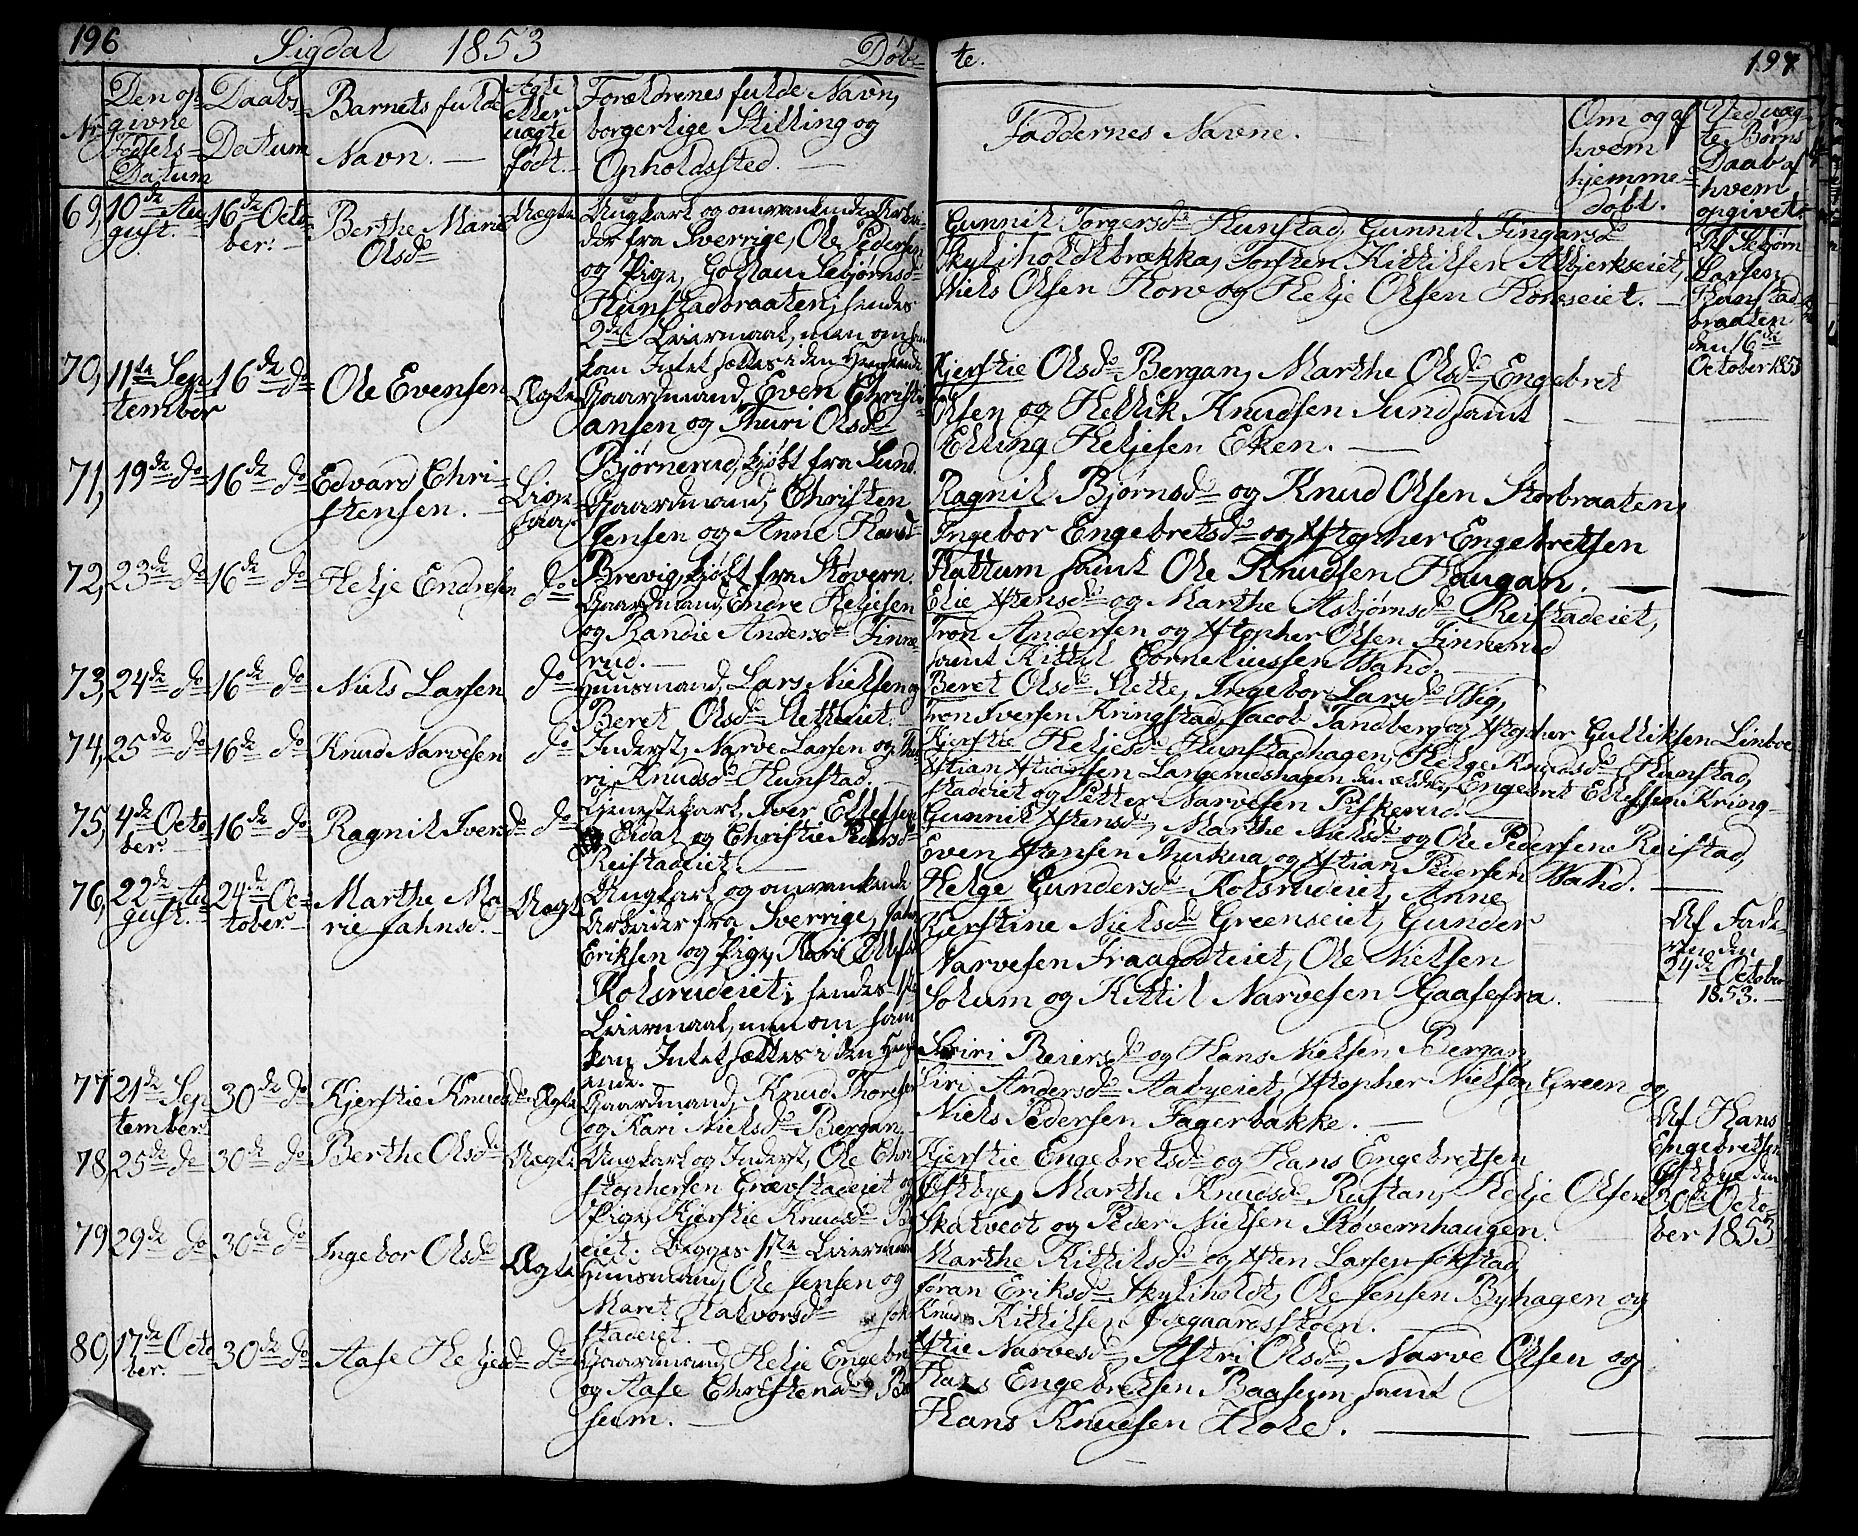 196 Sigdal 1853 Døb-
te. 197
No
Den op-
givne
Fødsels-
Datum
Daabs
Datum
Barnets fulde
Navn. —
Ægte
eller
uægte
født. —
Forældrenes fulde Navn,
borgerlige Stilling og
Opholdssted. —
Faddernes Navne. —
Om og af
hvem
hjemme-
døbt.
Ved uæg-
te Børns
Daab af
hvem
opgivet.
69, 10de Au-
gust. —
16de Octo-
ber. —
Berthe Marie
Olsd.
Uægte
Ungkarl og omvankende Arbei-
der fra Sverrige, Ole Pedersen
og Pige, Sebjørnsd.
Hunstadbraaten; hendes
2det Leiermaal, men om ham
kan Intet sættes i den Henseende
Gunnil Torgersd. Hunstad, Gunnil Fingarsd.
Skyliholdtbrækka, Torsten Kittilsen Asbjerkseiet,
Niels Olsen Horv og Helje Olsen Horvseiet. —
Af Sebjørn
Larsen
Hunstad-
braaten
den 16de
October 1853
70, 11te Sep-
tember
16de do
Ole Evensen
Ægte
Gaardmand, Even Christi-
ansen og Thuri Olsd.
Bjørnerud, kjøbt fra Lund.
Kjerstie Olsd. Bergan, Marthe Olsd., Engebret
Olsen og Hellik Knudsen Lund samt
Elling Heljesen Eken. —
71, 19de do
16de do
Edvard Chri-
stensen. —
Lige-
saa
Gaardmand, Christen
Jensen og Anne Hansd.
Brevig, kjøbt fra Støvern.
Ragnil Bjørnsd. og Knud Olsen Storbraaten,
Ingebor Engebretsd. og Xstopher Engebretsen
Kattum samt Ole Knudsen Haugan. —
72, 23de do
16de do
Helje Endresen
do
Gaardmand, Endre Heljesen
og Randie Andersd. Finne-
rud. —
Elie Xstensd. og Marthe Asbjørnsd. Reistadeiet,
Tron Andersen og Xstopher Olsen Finnerud
samt Kittil Corneliussen Wahd. —
73, 24de do
16de do
Niels Larsen
do
Huusmand, Lars Nielsen og
Beret Olsd. Sletteeiet. —
Beret Olsd. Slette, Ingebor Larsd. Wig,
Tron Iversen Kringstad, Jacob Tandberg og Xstopher Gulliksen Linboe
74, 25de do
16de do
Knud Narvesen
do
Inderst, Narve Larsen og Thu-
ri Knudsd. Hunstad.
Kjerstie Heljesd. Hunstadhagen, Helge Knudsd. Hunstad,
Xstian Xstiansen Langerudshagen den ældre, Engebret Ellefsen Kring-
stadeiet og Petter Narvesen Piskerud. —
75, 4de Octo-
ber.
16de do
Ragnil Iversd.
do
Tjenestekarl, Iver Ellefsen
Eidal og Christie Pedersd.
Reistadeiet. —
Gunnil Xstensd., Marthe Nielsd. og Ole Pedersen Reistad,
Even Xstensen og Xstian Pedersen Wahd. —
76, 22de Au-
gust. —
24de Oc-
tober. —
Marthe Ma-
rie Jahnsd. —
Uægte
Ungkarl og omvankende
Arbeider fra Sverrige, Jahn
Eriksen og Pige, Kari Ellefsd.
Kolsrudeiet; hendes 1ste
Leiermaal, men om ham
kan Intet sættes i den Hense-
ende.
Helge Gundersd. Kolsrudeiet, Anne
Kjerstine Nielsd. Greenseiet, Gunder
Narvesen Fraagodteiet, Ole Nielsen
Solum og Kittil Narvesen Gaasefra. —
Af Fade-
ren den
24de October
1853. —
77 21de Sep-
tember.
30de do
Kjerstie Knudsd.
Ægte
Gaardmand, Knud Thoresen
og Kari Nielsd. Bergan. —
Siri Reiersd. og Hans Nielsen Bergan,
Siri Andersd. Aabyeiet, Xstopher Nielsen Green og
Niels Pedersen Fagerbakke. —
78, 25de do
30de do
Berthe Olsd.
Uægte
Ungkarl og Inderst, Ole Chri-
stophersen Grævstadeiet og
Pige, Kjerstie Knudsd.
eiet. Begges 1ste Leiermaal
Kjerstie Engebretsd. og Hans Engebretsen
Østbye, Marthe Knudsd. Rustan, Helje Olsen
Skatvedt og Peder Nielsen Støvernhaugen.
Af Hans
Engebretsen
Østbye den
30te Octo-
ber 1853
79 29de do
30de do
Ingebor Olsd.
Ægte
Huusmand, Ole Jensen og
Maret Halvorsd. Jok-
stadeiet. —
Marthe Kittilsd. og Xsten Larsen Jokstad,
Jøran Eriksd. Skyliholdt, Ole Jensen Byhagen og
Knud Kittilsen Ødegaardsstøen. —
80, 17de Octo-
ber. —
30de do
Aase Heljesd.
do
Gaardmand, Helje Engebret-
og Aase Christensd. Ba-
seum. —
Xstie Narvesd., Astri Olsd., Narve Olsen og
Hans Engebretsen Baaseum samt
Hans Knudsen Hole. —